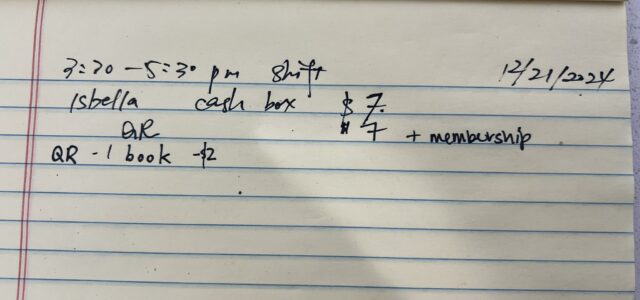 3:30 - 5:30 pm shift 12/21/2024
Isbella cash box $7.
QR $7 + membership
QR - 1 book - $2